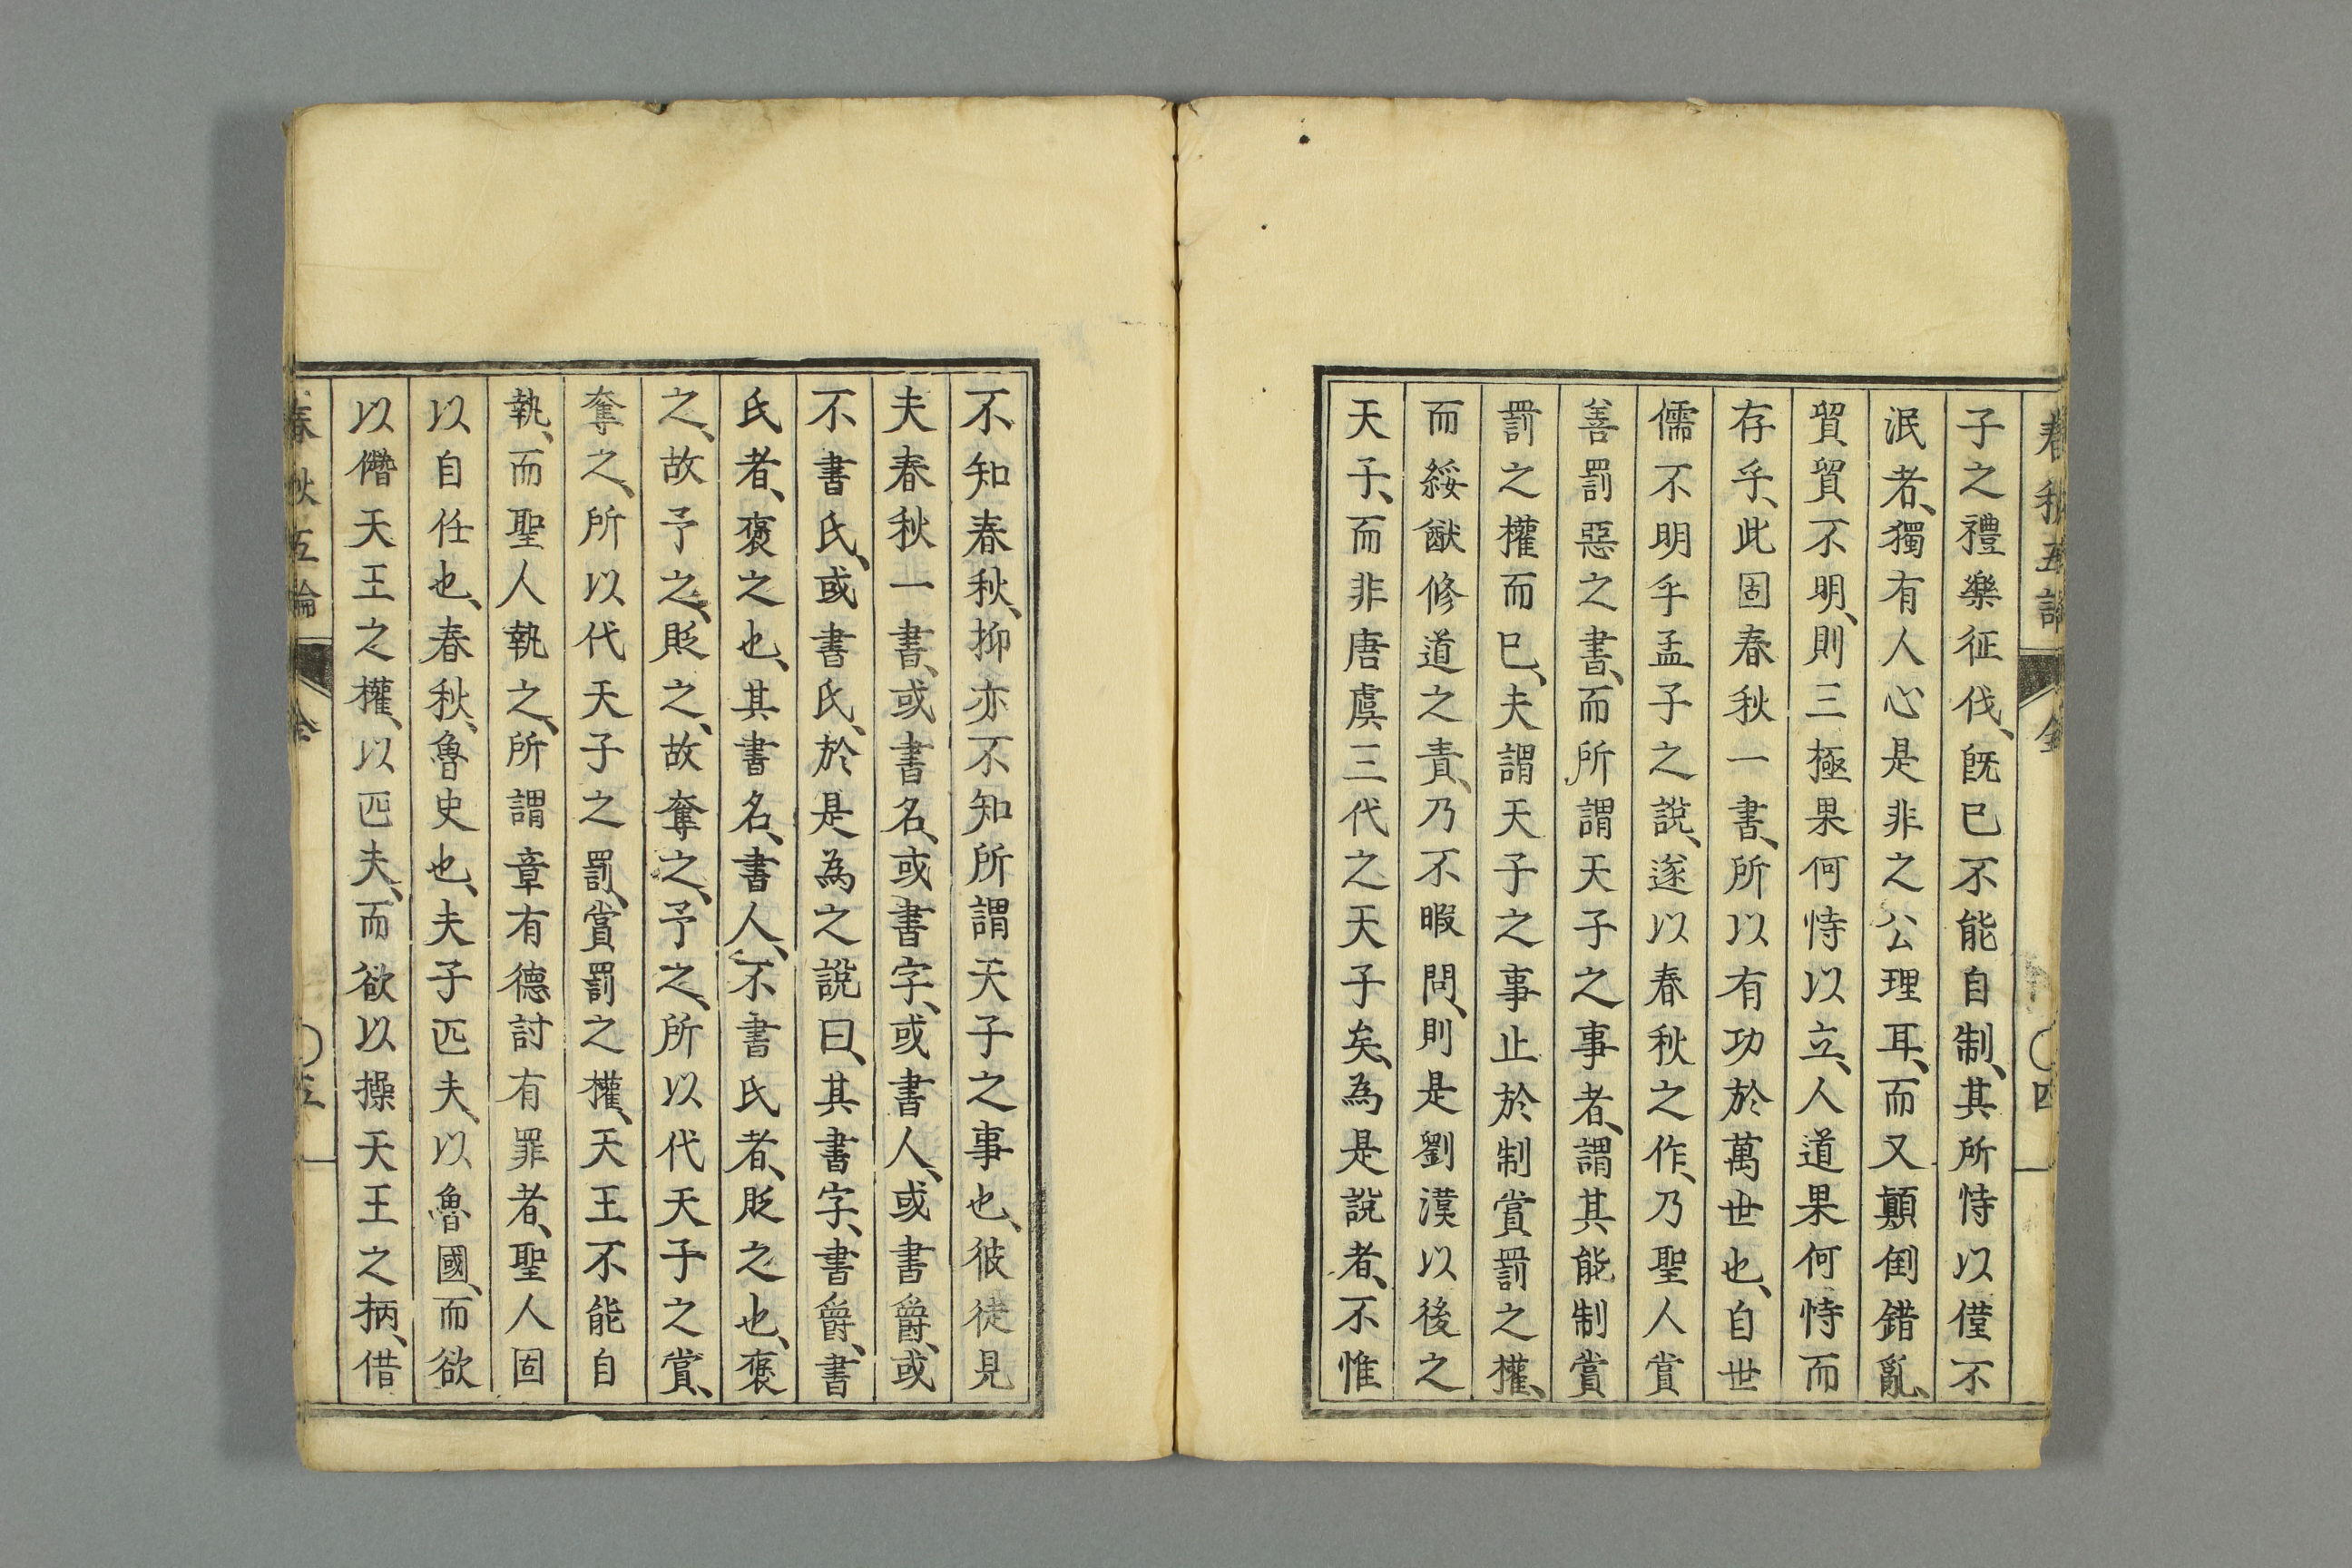 春秋五論 全 〇四
子之禮樂征伐、旣已不能自制、其所恃以僅不
泯者、獨有人心是非之公理耳、而又顚倒錯亂、
貿貿不明、則三極果何恃以立、人道果何恃而
存乎、此固春秋一書、所以有功於萬世也、自世
儒不明乎孟子之說、遂以春秋之作、乃聖人賞
善罰惡之書、而所謂天子之事者、謂其能制賞
罰之權而已、夫謂天子之事止於制賞罰之權、
而綏猷修道之責、乃不暇問、則是劉漢以後之
天子、而非唐虞三代之天子矣、為是說者、不惟
不知春秋、抑亦不知所謂天子之事也、彼徒見
夫春秋一書、或書名、或書字、或書人、或書爵、或
不書氏、或書氏、於是為之說曰、其書字、書爵、書
氏者、褒之也、其書名、書人、不書氏者、貶之也、褒
之、故予之、貶之、故奪之、予之、所以代天子之賞、
奪之、所以代天子之罰、賞罰之權、天王不能自
執、而聖人執之、所謂章有德討有罪者、聖人固
以自任也、春秋、魯史也、夫子匹夫、以魯國、而欲
以僭天王之權、以匹夫、而欲以操天王之柄、借
春秋五論 全 〇五